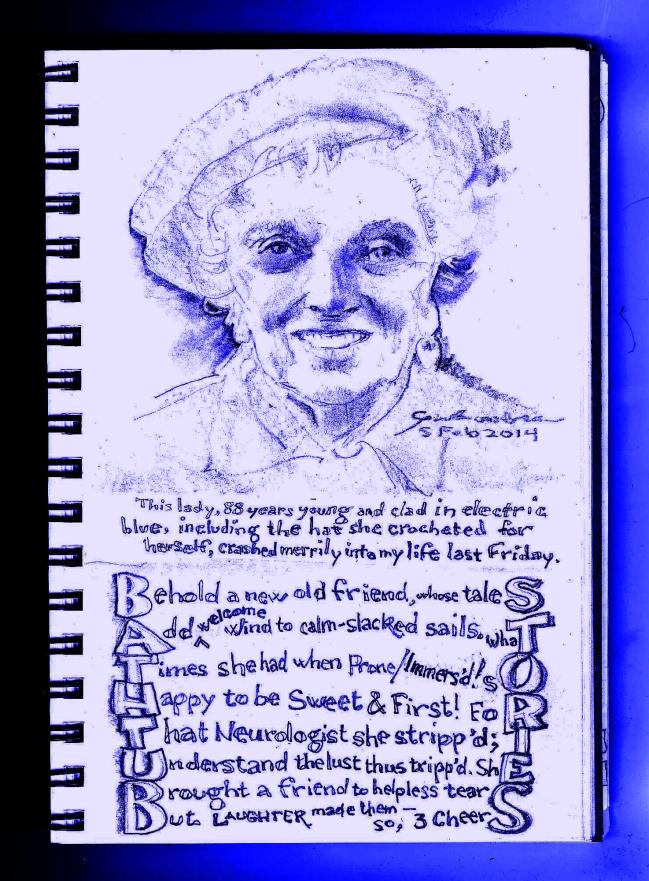 5 Feb 2014
This lady, 88 years young and clad in electric
blue, including the hat she crocheted for
herself, crashed merrily into my life last Friday.
Behold a new old friend, whose taleS
Add welcome Wind to calm-slacked sails. WhaT
Times she had when Prone/Immers'd!! sO
Happy to be Sweet & First! FoR
That Neurologist she stripp'd; I
Understand the lust thus tripp'd. ShE
Brought a friend to helpless tearS
But LAUGHTER made them — so, 3 CheerS